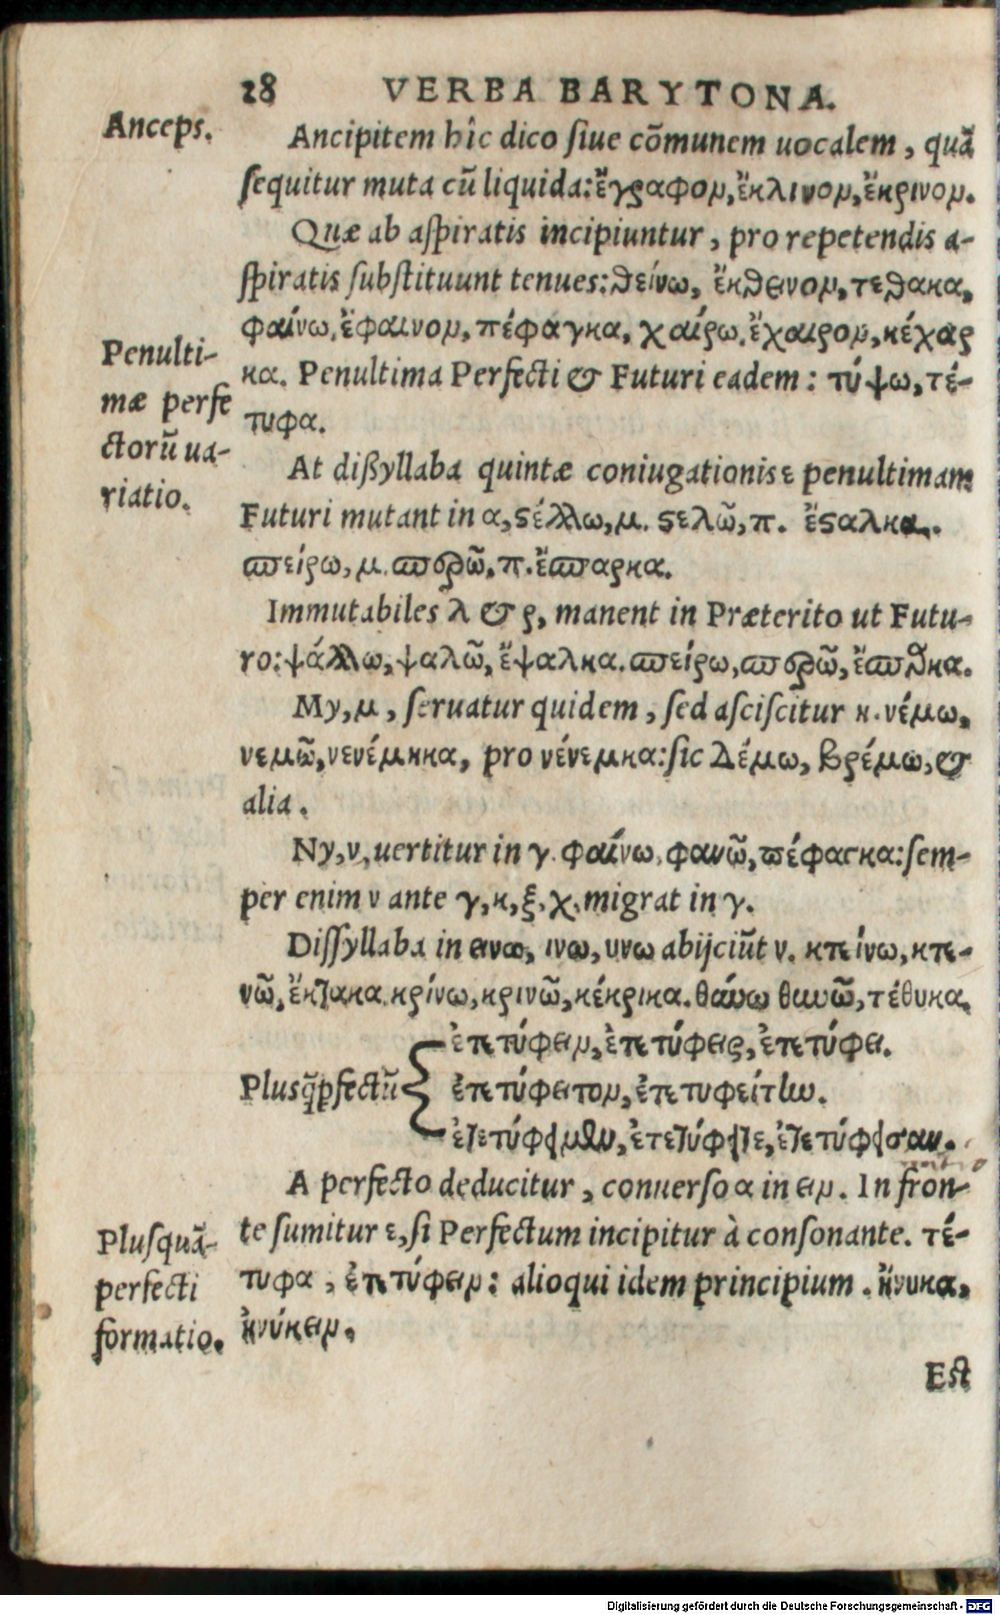 28 VERBA BARYTONA.
Anceps.
Ancipitem hîc dico ſiue cõmunem uocalem, quã
ſequitur muta cũ liquida: ἔγραφον, ἔκλινον, ἔκρινον.
Quæ ab aſpiratis incipiuntur, pro repetendis a-
ſpiratis ſubſtituunt tenues: θείνω, ἔκθεινον, τεθακα,
φαίνω, ἔφαινον, πέφαγκα, χαίρω, ἔχαιρον, κέχαρ
κα. Penultima Perfecti & Futuri eadem: τύψω, τέ-
τυφα.
Penulti-
mæ perfe
ctorũ ua-
riatio.
At dißyllaba quintæ coniugationis ε penultimam
Futuri mutant in α, ςέλλω, μ. ςελῶ, π. ἔςαλκα.
σπείρω, μ. σπερῶ, π. ἔσπαρκα.
Immutabiles λ & ρ, manent in Præterito ut Futu-
ro: ψάλλω, ψαλῶ, ἔψαλκα. σπείρω, σπερῶ, ἔσπαρκα.
My, μ, ſeruatur quidem, ſed aſciſcitur η. νέμω,
νεμῶ, νενέμηκα, pro νένεμκα: ſic Δέμω, βρέμω, &
alia.
Ny, ν, uertitur in γ. φαίνω, φανῶ, πέφαγκα: ſem-
per enim ν ante γ, κ, ξ, χ, migrat in γ.
Diſſyllaba in εινω, ινω, υνω abijciũt ν. κτείνω, κτε-
νῶ, ἔκτακα. κρίνω, κρινῶ, κέκρικα. θύνω θυνῶ, τέθυκα.
ἐτετύφειν, ἐτετύφεις, ἐτετύφει.
Plusq̃pfectũ ἐτετύφειτον, ἐτετυφείτην.
ἐτετύφειμεν, ἐτετύφειτε, ἐτετύφεισαν.
A perfecto deducitur, conuerſo α in ειν. In fron-
te ſumitur ε, ſi Perfectum incipitur à conſonante. τέ-
τυφα, ἐτετύφειν: alioqui idem principium. ἤνυκα,
ἠνύκειν.
Pluſquã-
perfecti
formatio.
Eſt
Digitalisierung gefördert durch die Deutsche Forschungsgemeinschaft - DFG